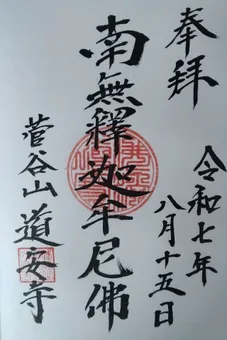 奉拝
令和七年
八月十五日
南無釋迦牟尼佛
菅谷山道安寺